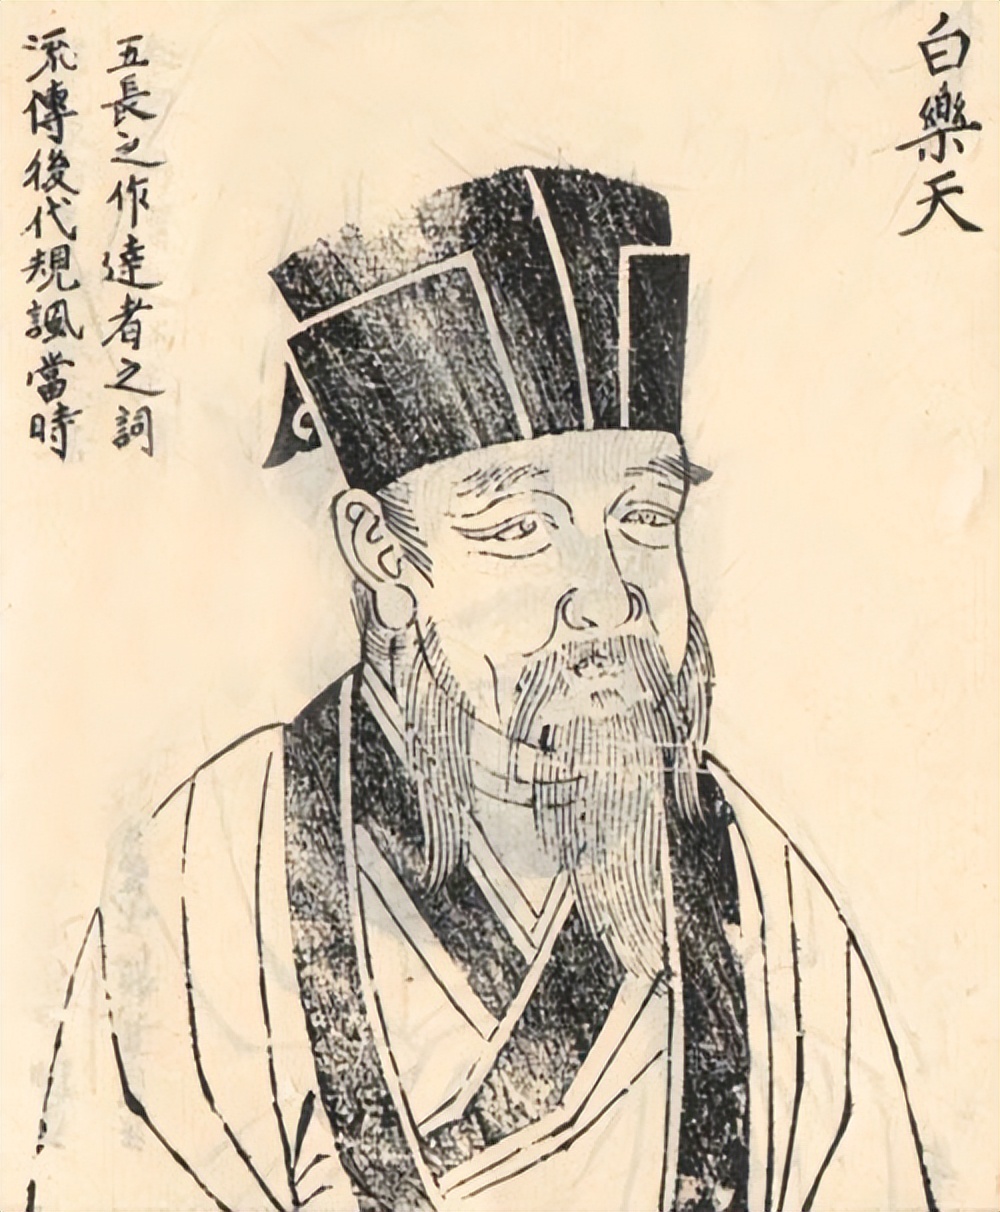 白樂天
五長之作達者之詞
流傳後代規諷當時